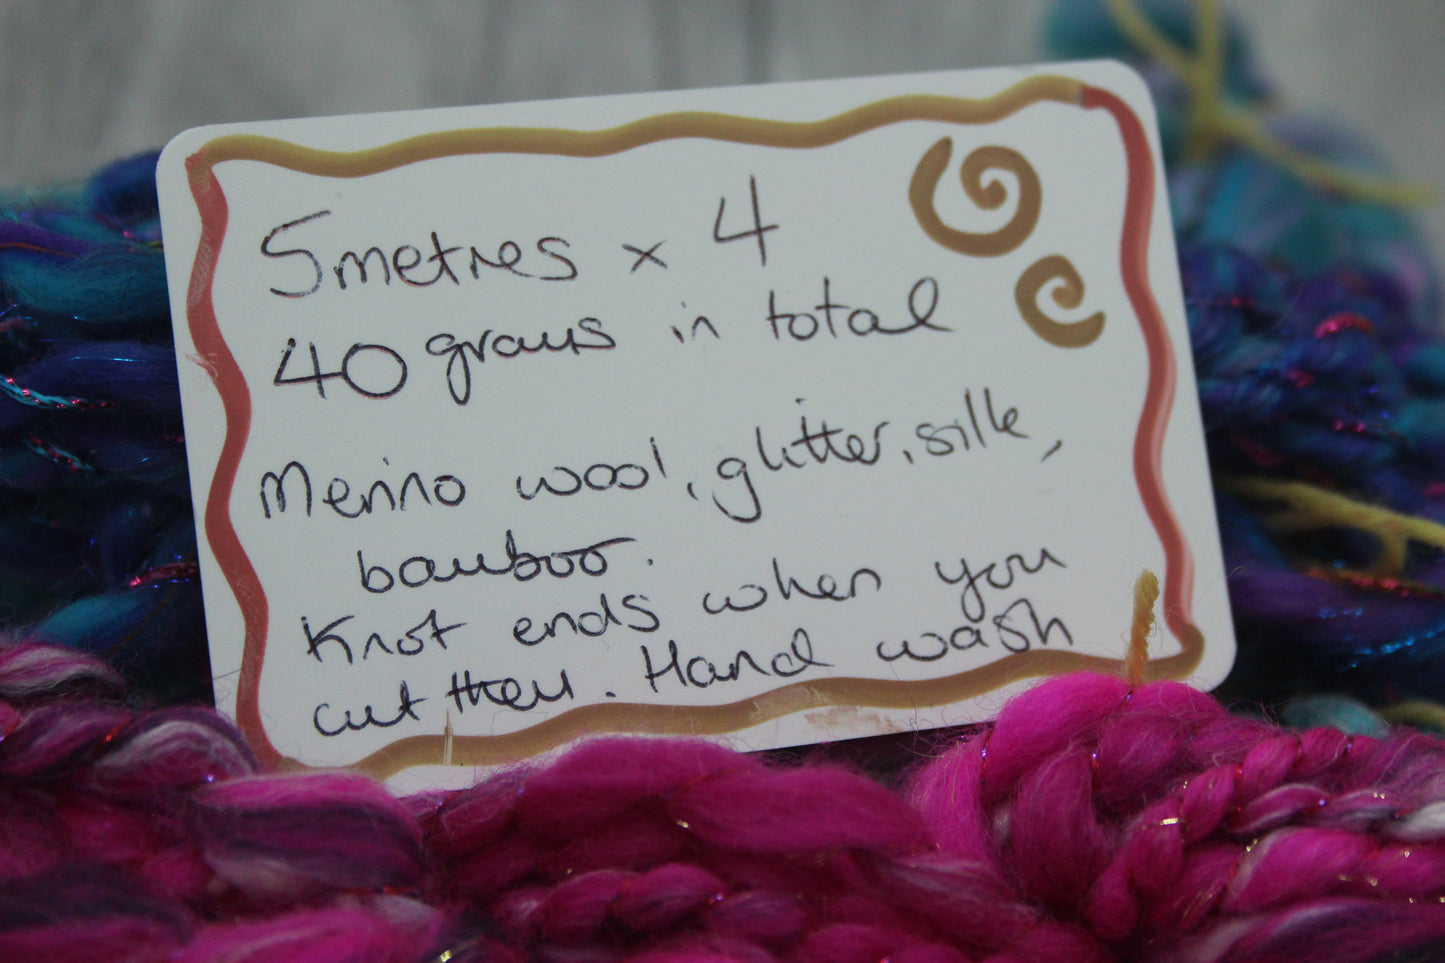 5metres x 4
40 grams in total
Merino wool, glitter, silk,
bamboo.
Knot ends when you
cut them. Hand wash